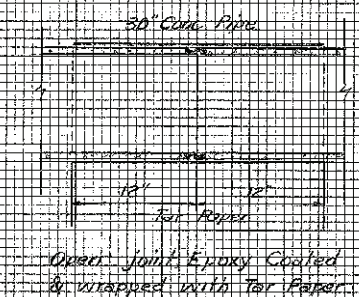 30" Conc Pipe
12" 12"
Tar Paper
Open joint, Epoxy Coated
& wrapped with Tar Paper